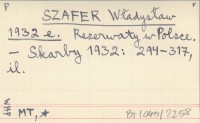 P
SZAFER Władysław
1932 e. Rezerwaty w Polsce.
— Skarby 1932: 294-317,
il.
MT, *